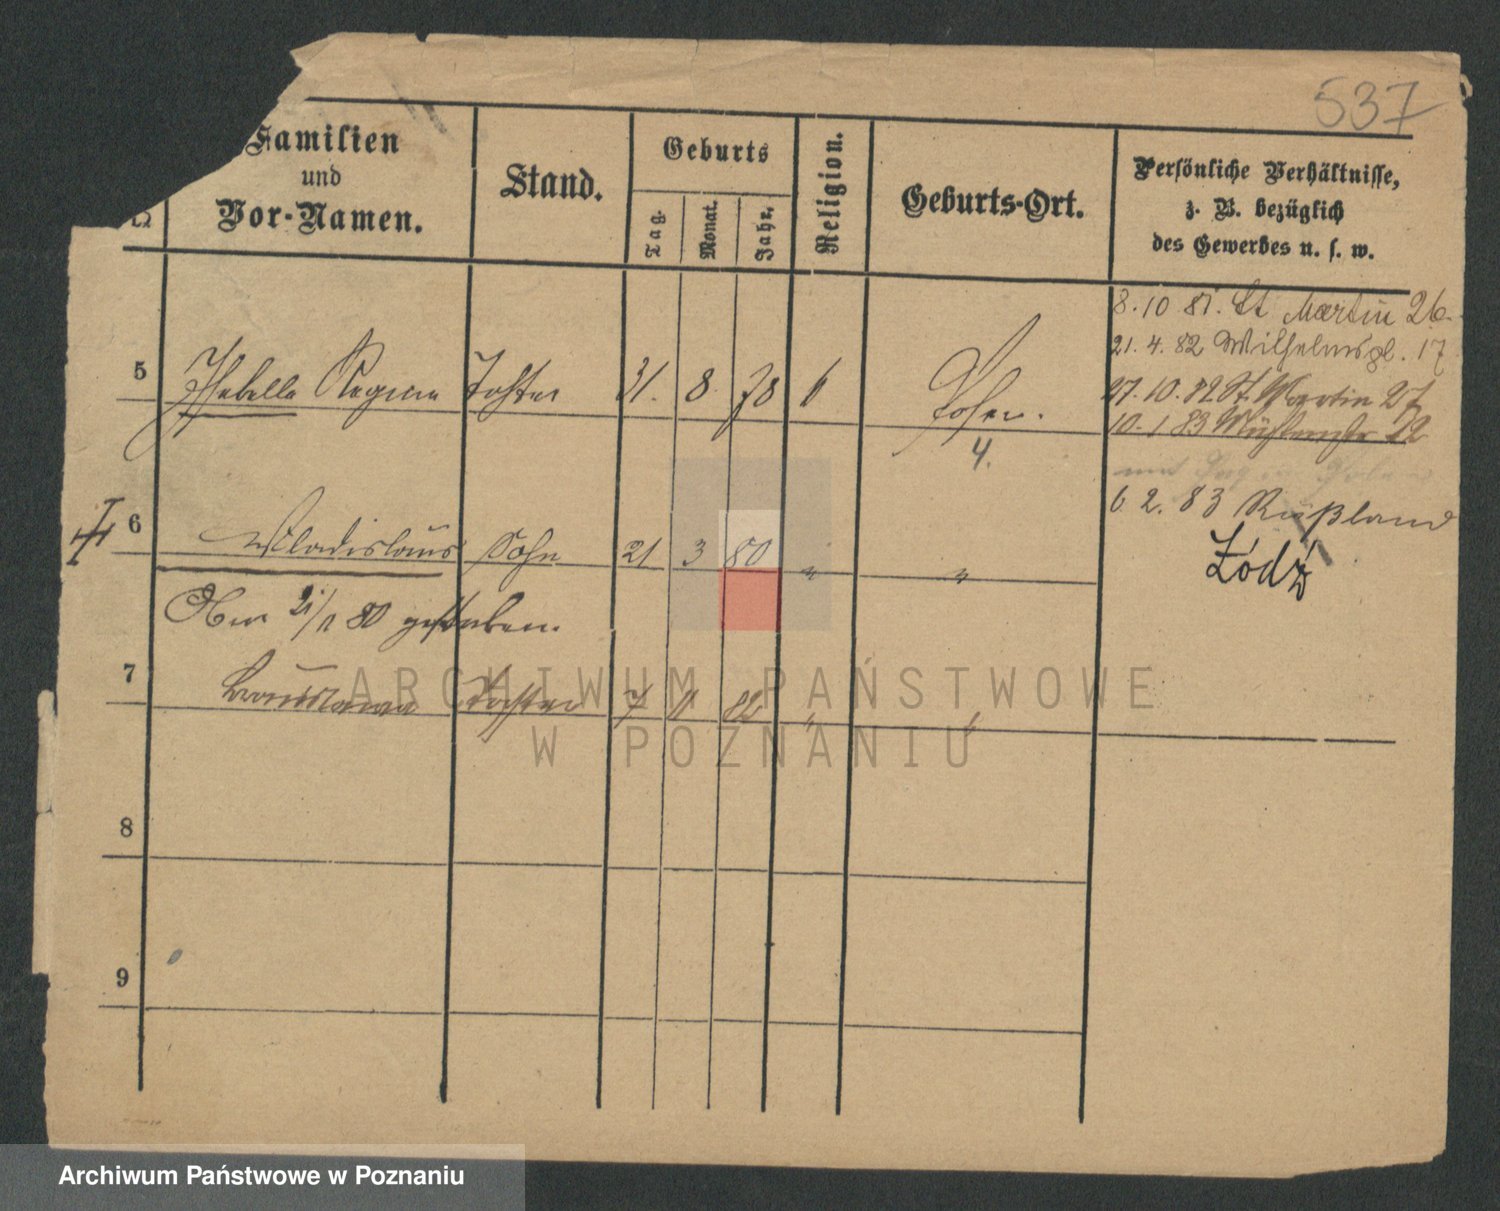 537
Familien
und
Vor-Namen.
Stand.
Geburts
Tag.
Monat.
Jahr.
Religion.
Geburts-Ort.
Persönliche Verhältnisse,
z. B. bezüglich
des Gewerbes u. s. w.
8. 10 81. St Martin 26.
21. 4. 82 Wilhelmspl. 17
27. 10. 82 St. Martin 27
10. 1 83 Mühlenstr 22
5 Isabella Regina Tochter 31. 8. 78 Posen.
4.
6 2. 83 Rußland
Łódź
6 Wladislaus Sohn 21 3 80 " "
80 gestorben.
7 Bronislawa Tochter 7 82 " "
8
9
ARCHIWUM PAŃSTWOWE
W POZNANIU
Archiwum Państwowe w Poznaniu